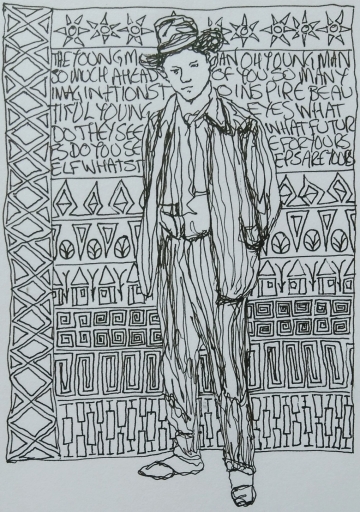 THE YOUNG M AN OH YOUNG MAN
SO MUCH AHEAD OF YOU SO MANY
IMAGINATIONS T O INSPIRE BEAU
TIFUL YOUNG EYES WHAT
DO THEY SEE WHAT FUTUR
ES DO YOU SE E FOR YOURS
ELF WHAT ST EPS ARE YOUR